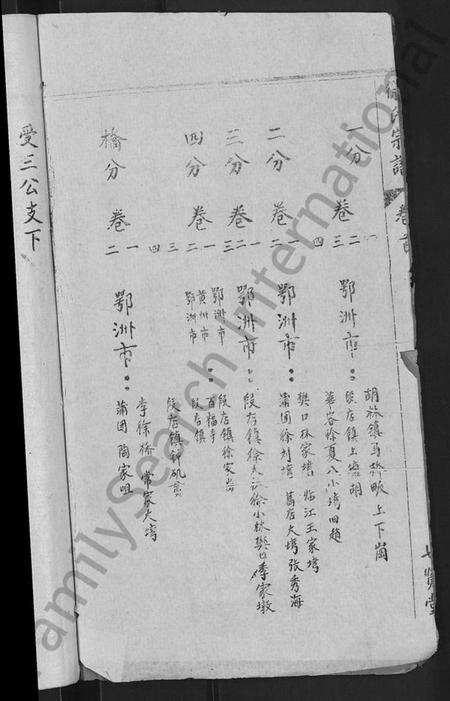 徐氏宗譜 卷首
七賢堂
一分 卷 一 二 三 四 鄂洲市：
胡林鎮馬橋畈上下崗
段店鎮上塘胡
華容徐夏八小塆四趙
二分 卷 一 二 鄂洲市：
樊口林家塆 臨江王家塆
蒲团徐刘塆 葛店大塆张秀海
三分 卷 一 二 三 鄂洲市：
段店鎮徐大 徐小林樊口李家墩
四分 卷 一 二 三 四
鄂洲市 段店鎮徐家
黄洲市 百福寺
鄂洲市 段店鎮
段店鎮
橋分 卷 一 二 鄂洲市：
李徐桥 常家大塆
蒲团 陶家咀
受三公支下
FamilySearch International